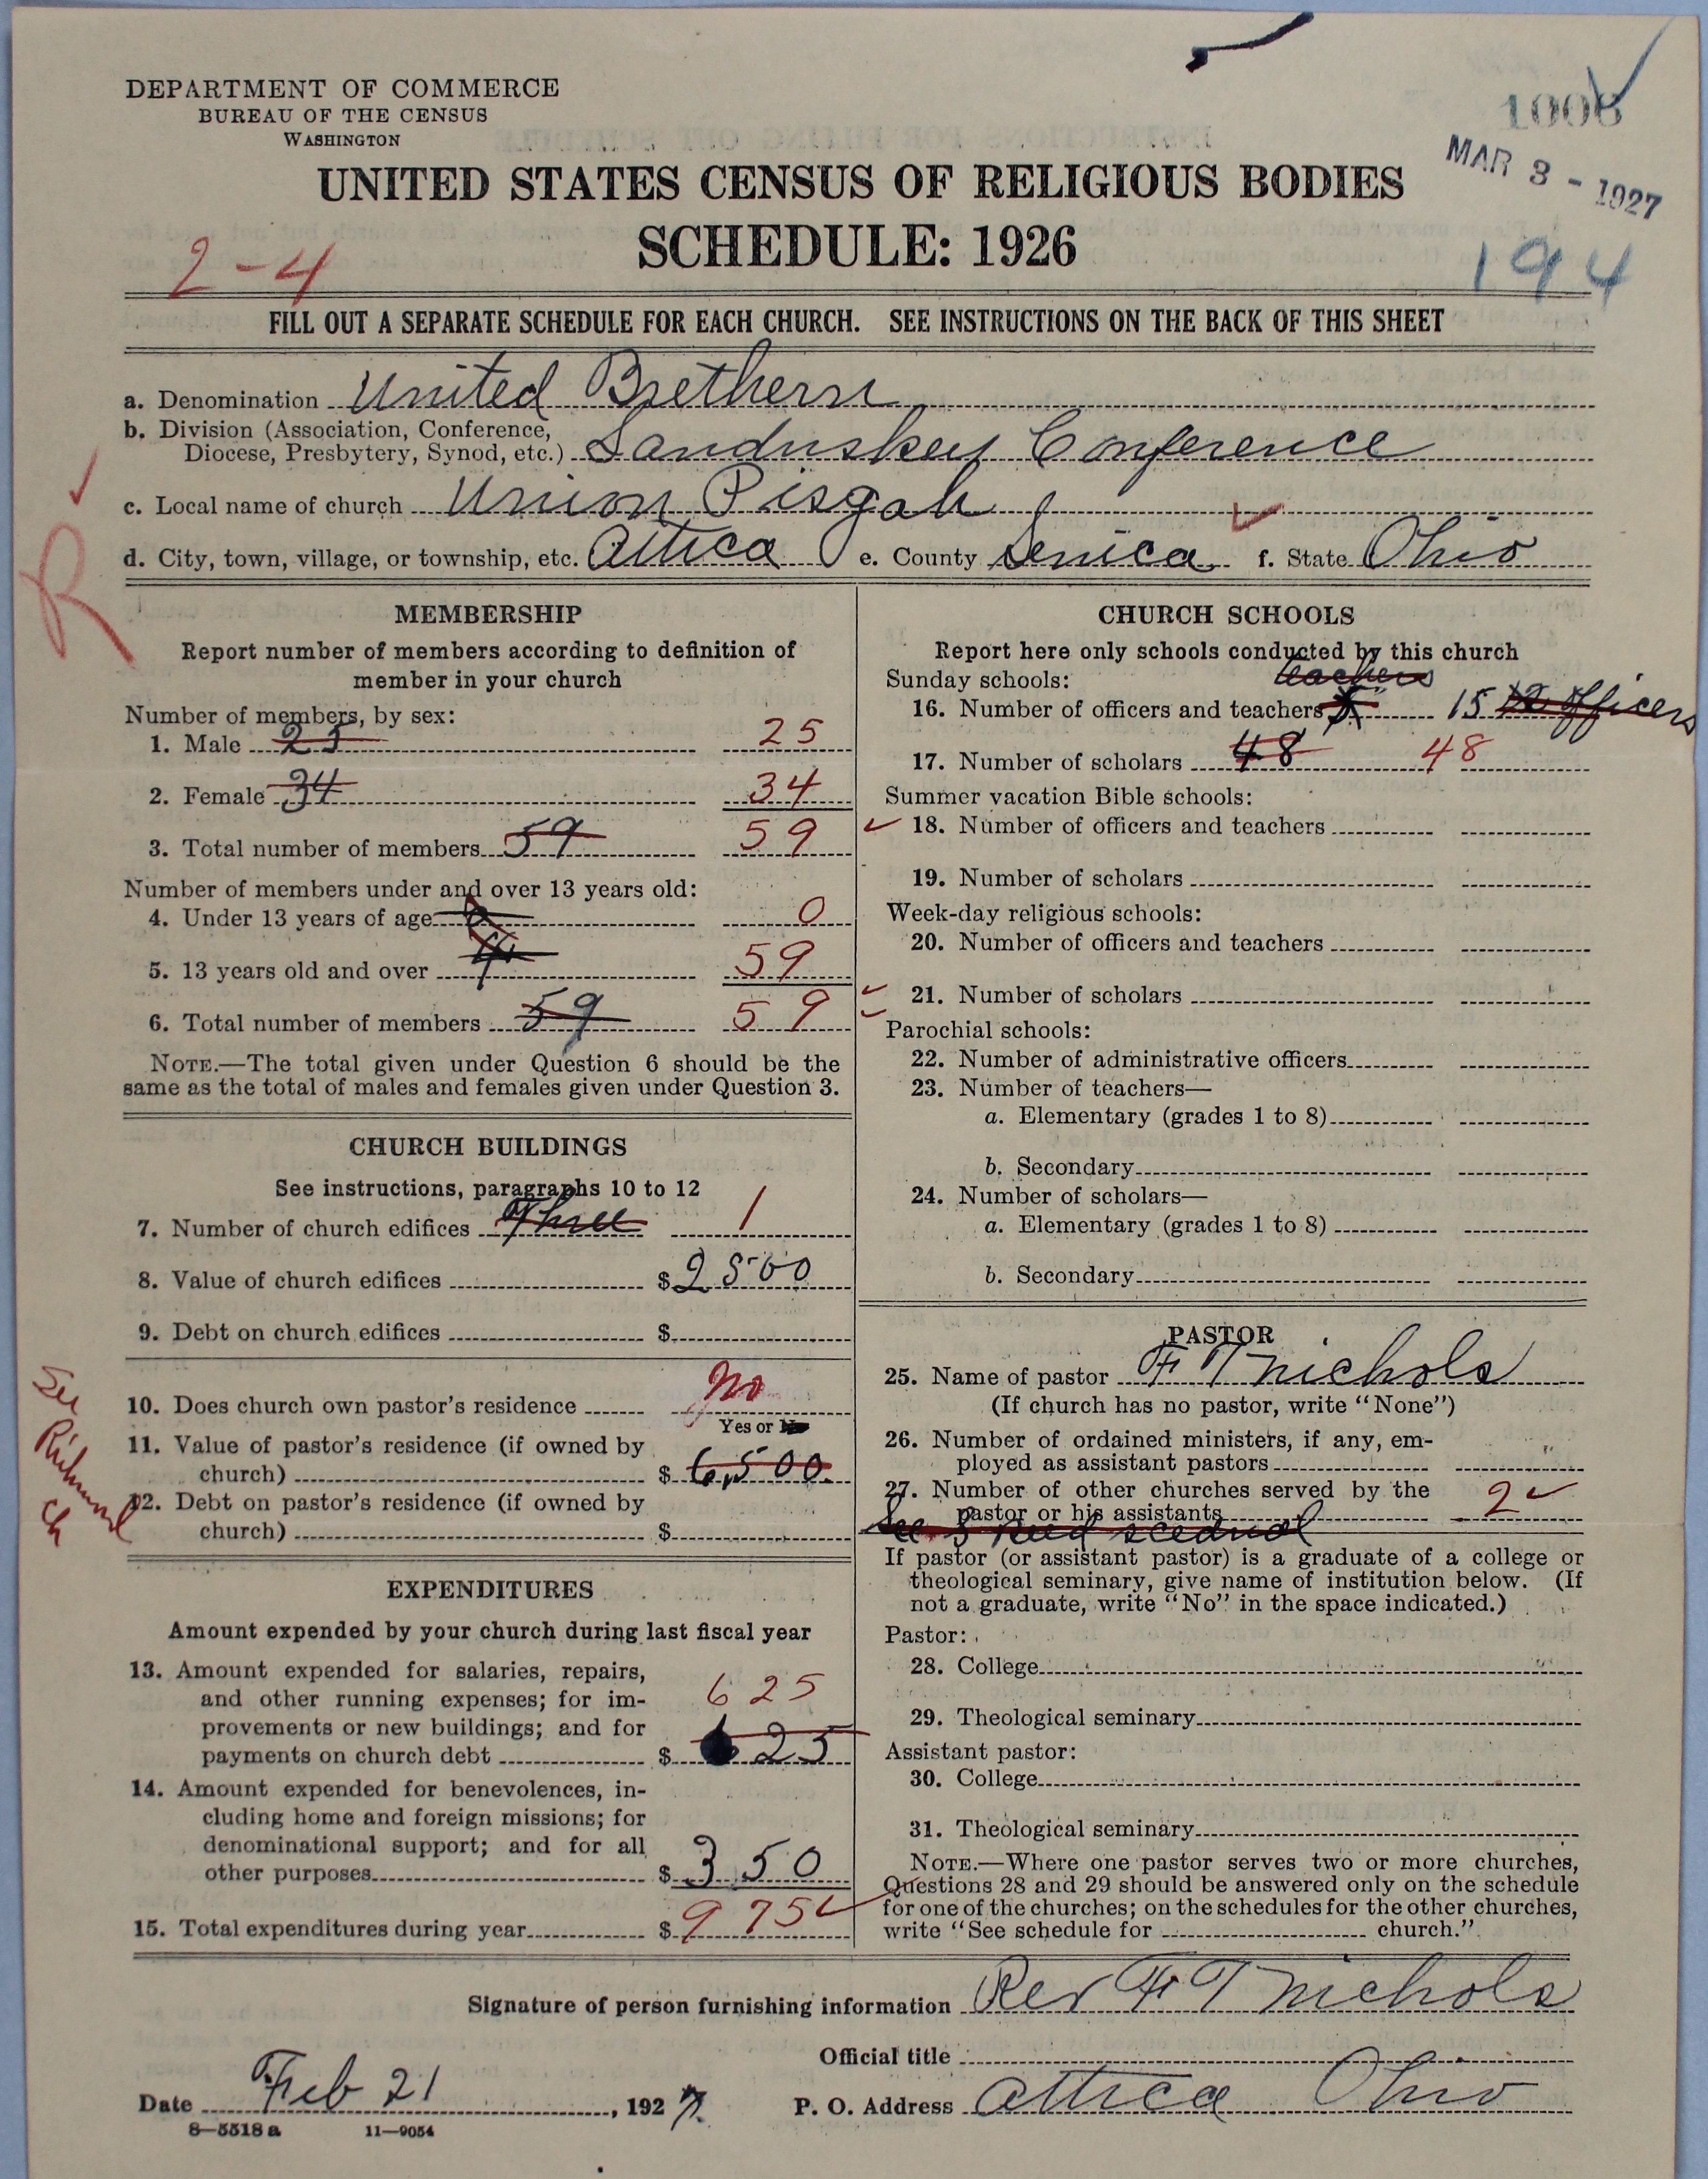 DEPARTMENT OF COMMERCE
BUREAU OF THE CENSUS
WASHINGTON
1006
MAR 3 - 1927
UNITED STATES CENSUS OF RELIGIOUS BODIES
SCHEDULE: 1926
2-4
194
FILL OUT A SEPARATE SCHEDULE FOR EACH CHURCH. SEE INSTRUCTIONS ON THE BACK OF THIS SHEET
a. Denomination United Brethern
b. Division (Association, Conference,
Diocese, Presbytery, Synod, etc.) Sanduskey Conference
c. Local name of church Union Pisgah
d. City, town, village, or township, etc. Attica e. County Senica f. State Ohio
R
MEMBERSHIP
Report number of members according to definition of
member in your church
Number of members, by sex:
1. Male 25 25
2. Female 34 34
3. Total number of members 59 59
Number of members under and over 13 years old:
4. Under 13 years of age 0
5. 13 years old and over 59
6. Total number of members 59 59
NOTE.—The total given under Question 6 should be the
same as the total of males and females given under Question 3.
CHURCH BUILDINGS
See instructions, paragraphs 10 to 12
7. Number of church edifices Three 1
8. Value of church edifices $ 2500
9. Debt on church edifices $
10. Does church own pastor's residence No
Yes or No
11. Value of pastor's residence (if owned by
church) $ 6,500.
12. Debt on pastor's residence (if owned by
church) $
See
Richmond
Ch
EXPENDITURES
Amount expended by your church during last fiscal year
13. Amount expended for salaries, repairs,
and other running expenses; for im-
provements or new buildings; and for
payments on church debt $ 625
625
14. Amount expended for benevolences, in-
cluding home and foreign missions; for
denominational support; and for all
other purposes $ 350
15. Total expenditures during year $ 975
CHURCH SCHOOLS
Report here only schools conducted by this church
Sunday schools: teachers
16. Number of officers and teachers 15 officers
17. Number of scholars 48 48
Summer vacation Bible schools:
18. Number of officers and teachers
19. Number of scholars
Week-day religious schools:
20. Number of officers and teachers
21. Number of scholars
Parochial schools:
22. Number of administrative officers
23. Number of teachers—
a. Elementary (grades 1 to 8)
b. Secondary
24. Number of scholars—
a. Elementary (grades 1 to 8)
b. Secondary
PASTOR
25. Name of pastor F T Nichols
(If church has no pastor, write "None")
26. Number of ordained ministers, if any, em-
ployed as assistant pastors
27. Number of other churches served by the
pastor or his assistants 2
See
If pastor (or assistant pastor) is a graduate of a college or
theological seminary, give name of institution below. (If
not a graduate, write "No" in the space indicated.)
Pastor:
28. College
29. Theological seminary
Assistant pastor:
30. College
31. Theological seminary
NOTE.—Where one pastor serves two or more churches,
Questions 28 and 29 should be answered only on the schedule
for one of the churches; on the schedules for the other churches,
write "See schedule for church."
Signature of person furnishing information Rev F T Nichols
Official title
Date Feb 21, 1927. P. O. Address Attica Ohio
8—5518 a 11—9054